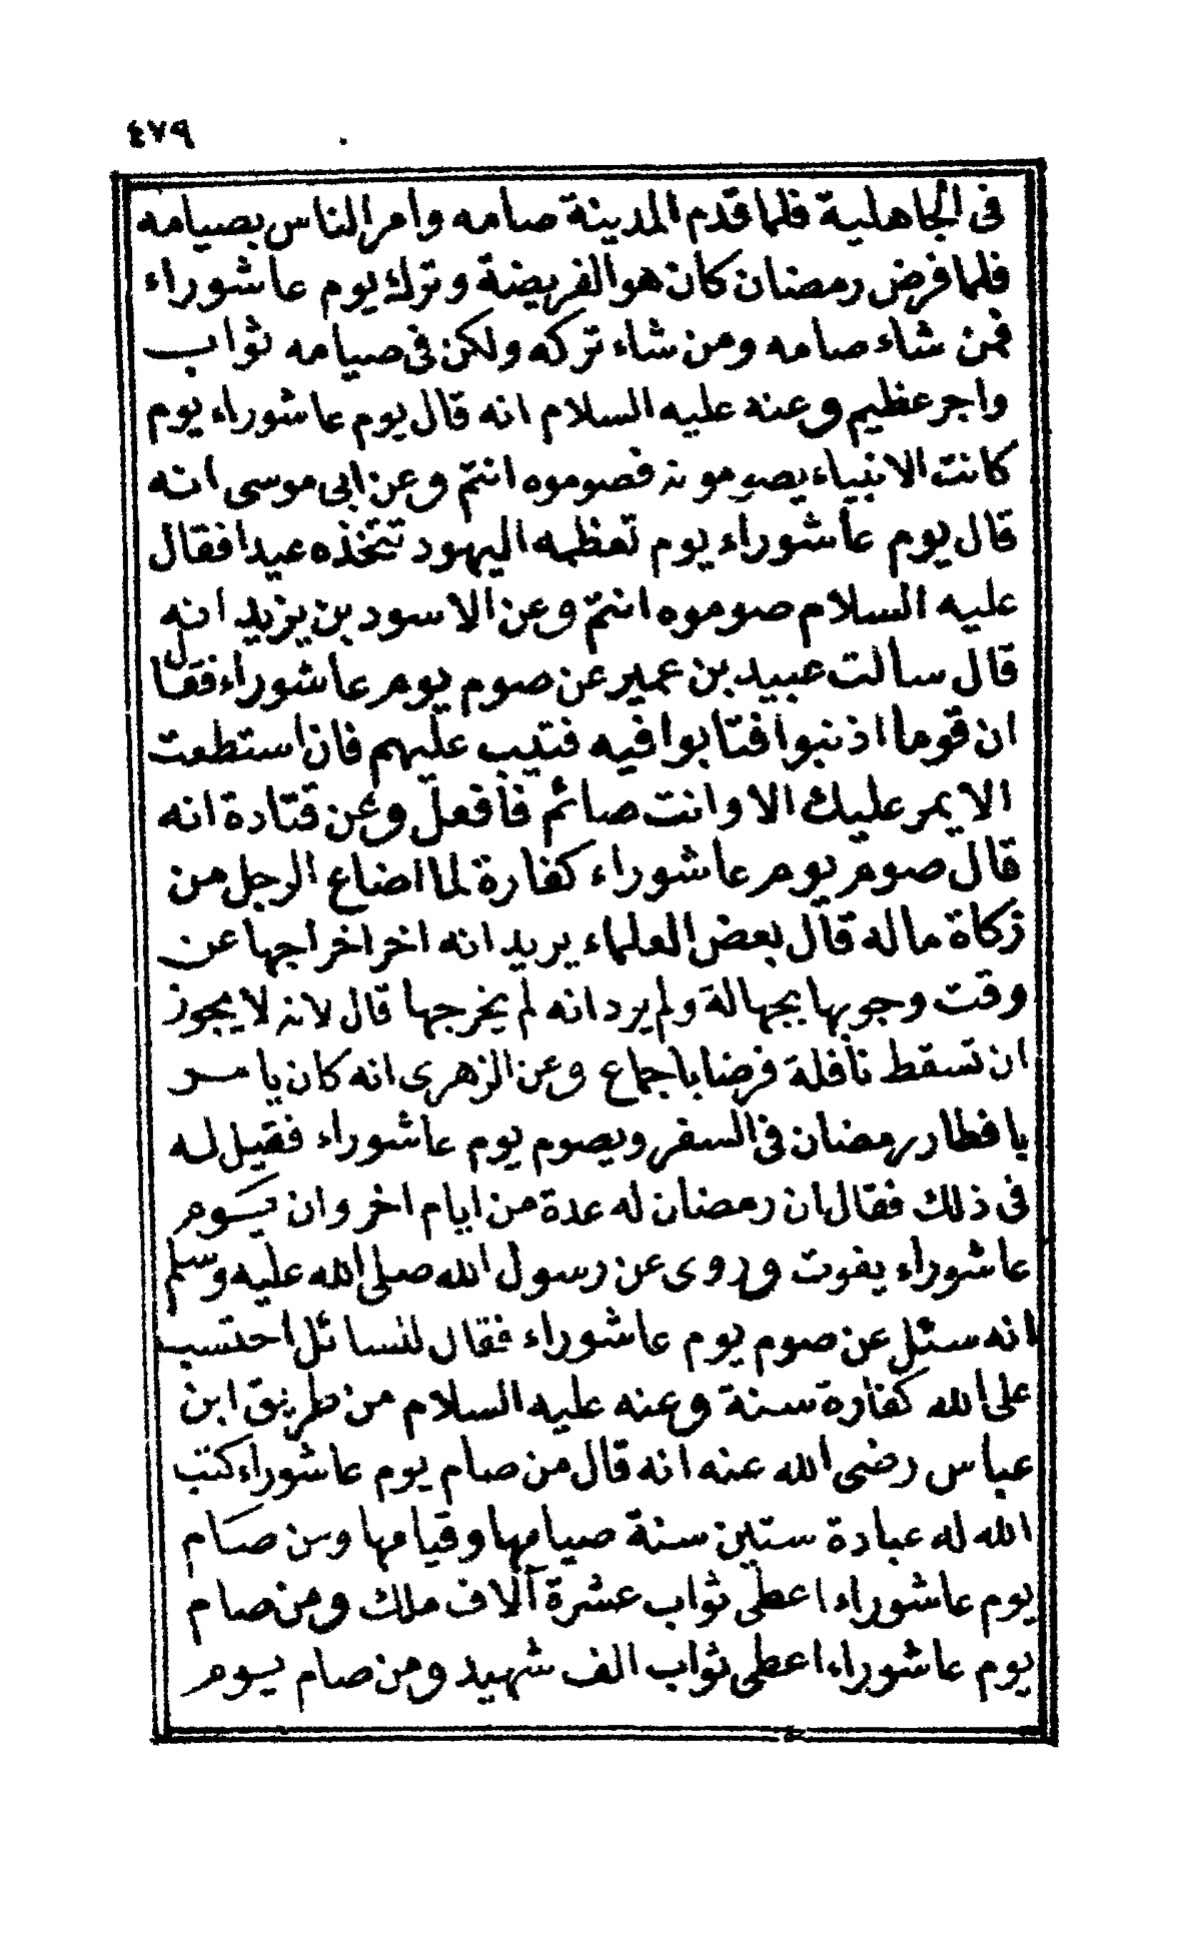 ٤٧٩
فى الجاهلية فلما قدم المدينة صامه وامر الناس بصيامه
فلما فرض رمضان كان هو الفريضة وترك يوم عاشوراء
فمن شاء صامه ومن شاء تركه ولكن فى صيامه ثواب
واجر عظيم وعنه عليه السلام انه قال يوم عاشوراء يوم
كانت الانبياء يصومونه فصوموه انتم وعن ابى موسى انه
قال يوم عاشوراء يوم تعظمه اليهود تتخذه عيدا فقال
عليه السلام صوموه انتم وعن الاسود بن يزيد انه
قال سالت عبيد بن عمير عن صوم يوم عاشوراء فقال
ان قوما اذنبوا فتابوا فيه فتيب عليهم فان استطعت
الا يمر عليك الا وانت صائم فافعل وعن قتادة انه
قال صوم يوم عاشوراء كفارة لما اضاع الرجل من
زكاة ماله قال بعض العلماء يريد انه اخر اخراجها عن
وقت وجوبها بجهالة ولم يرد انه لم يخرجها قال لانه لا يجوز
ان تسقط نافلة فرضا باجماع وعن الزهرى انه كان يامر
يافطار رمضان فى السفر ويصوم يوم عاشوراء فقيل له
فى ذلك فقال ان رمضان له عدة من ايام اخر وان يوم
عاشوراء يفوت وروى عن رسول الله صلى الله عليه وسلم
انه سئل عن صوم يوم عاشوراء فقال للسائل احتسب
على الله كفارة سنة وعنه عليه السلام من طريق ابن
عباس رضى الله عنه انه قال من صام يوم عاشوراء كتب
الله له عبادة ستين سنة صيامها وقيامها ومن صام
يوم عاشوراء اعطى ثواب عشرة آلاف ملك ومن صام
يوم عاشوراء اعطى ثواب الف شهيد ومن صام يوم